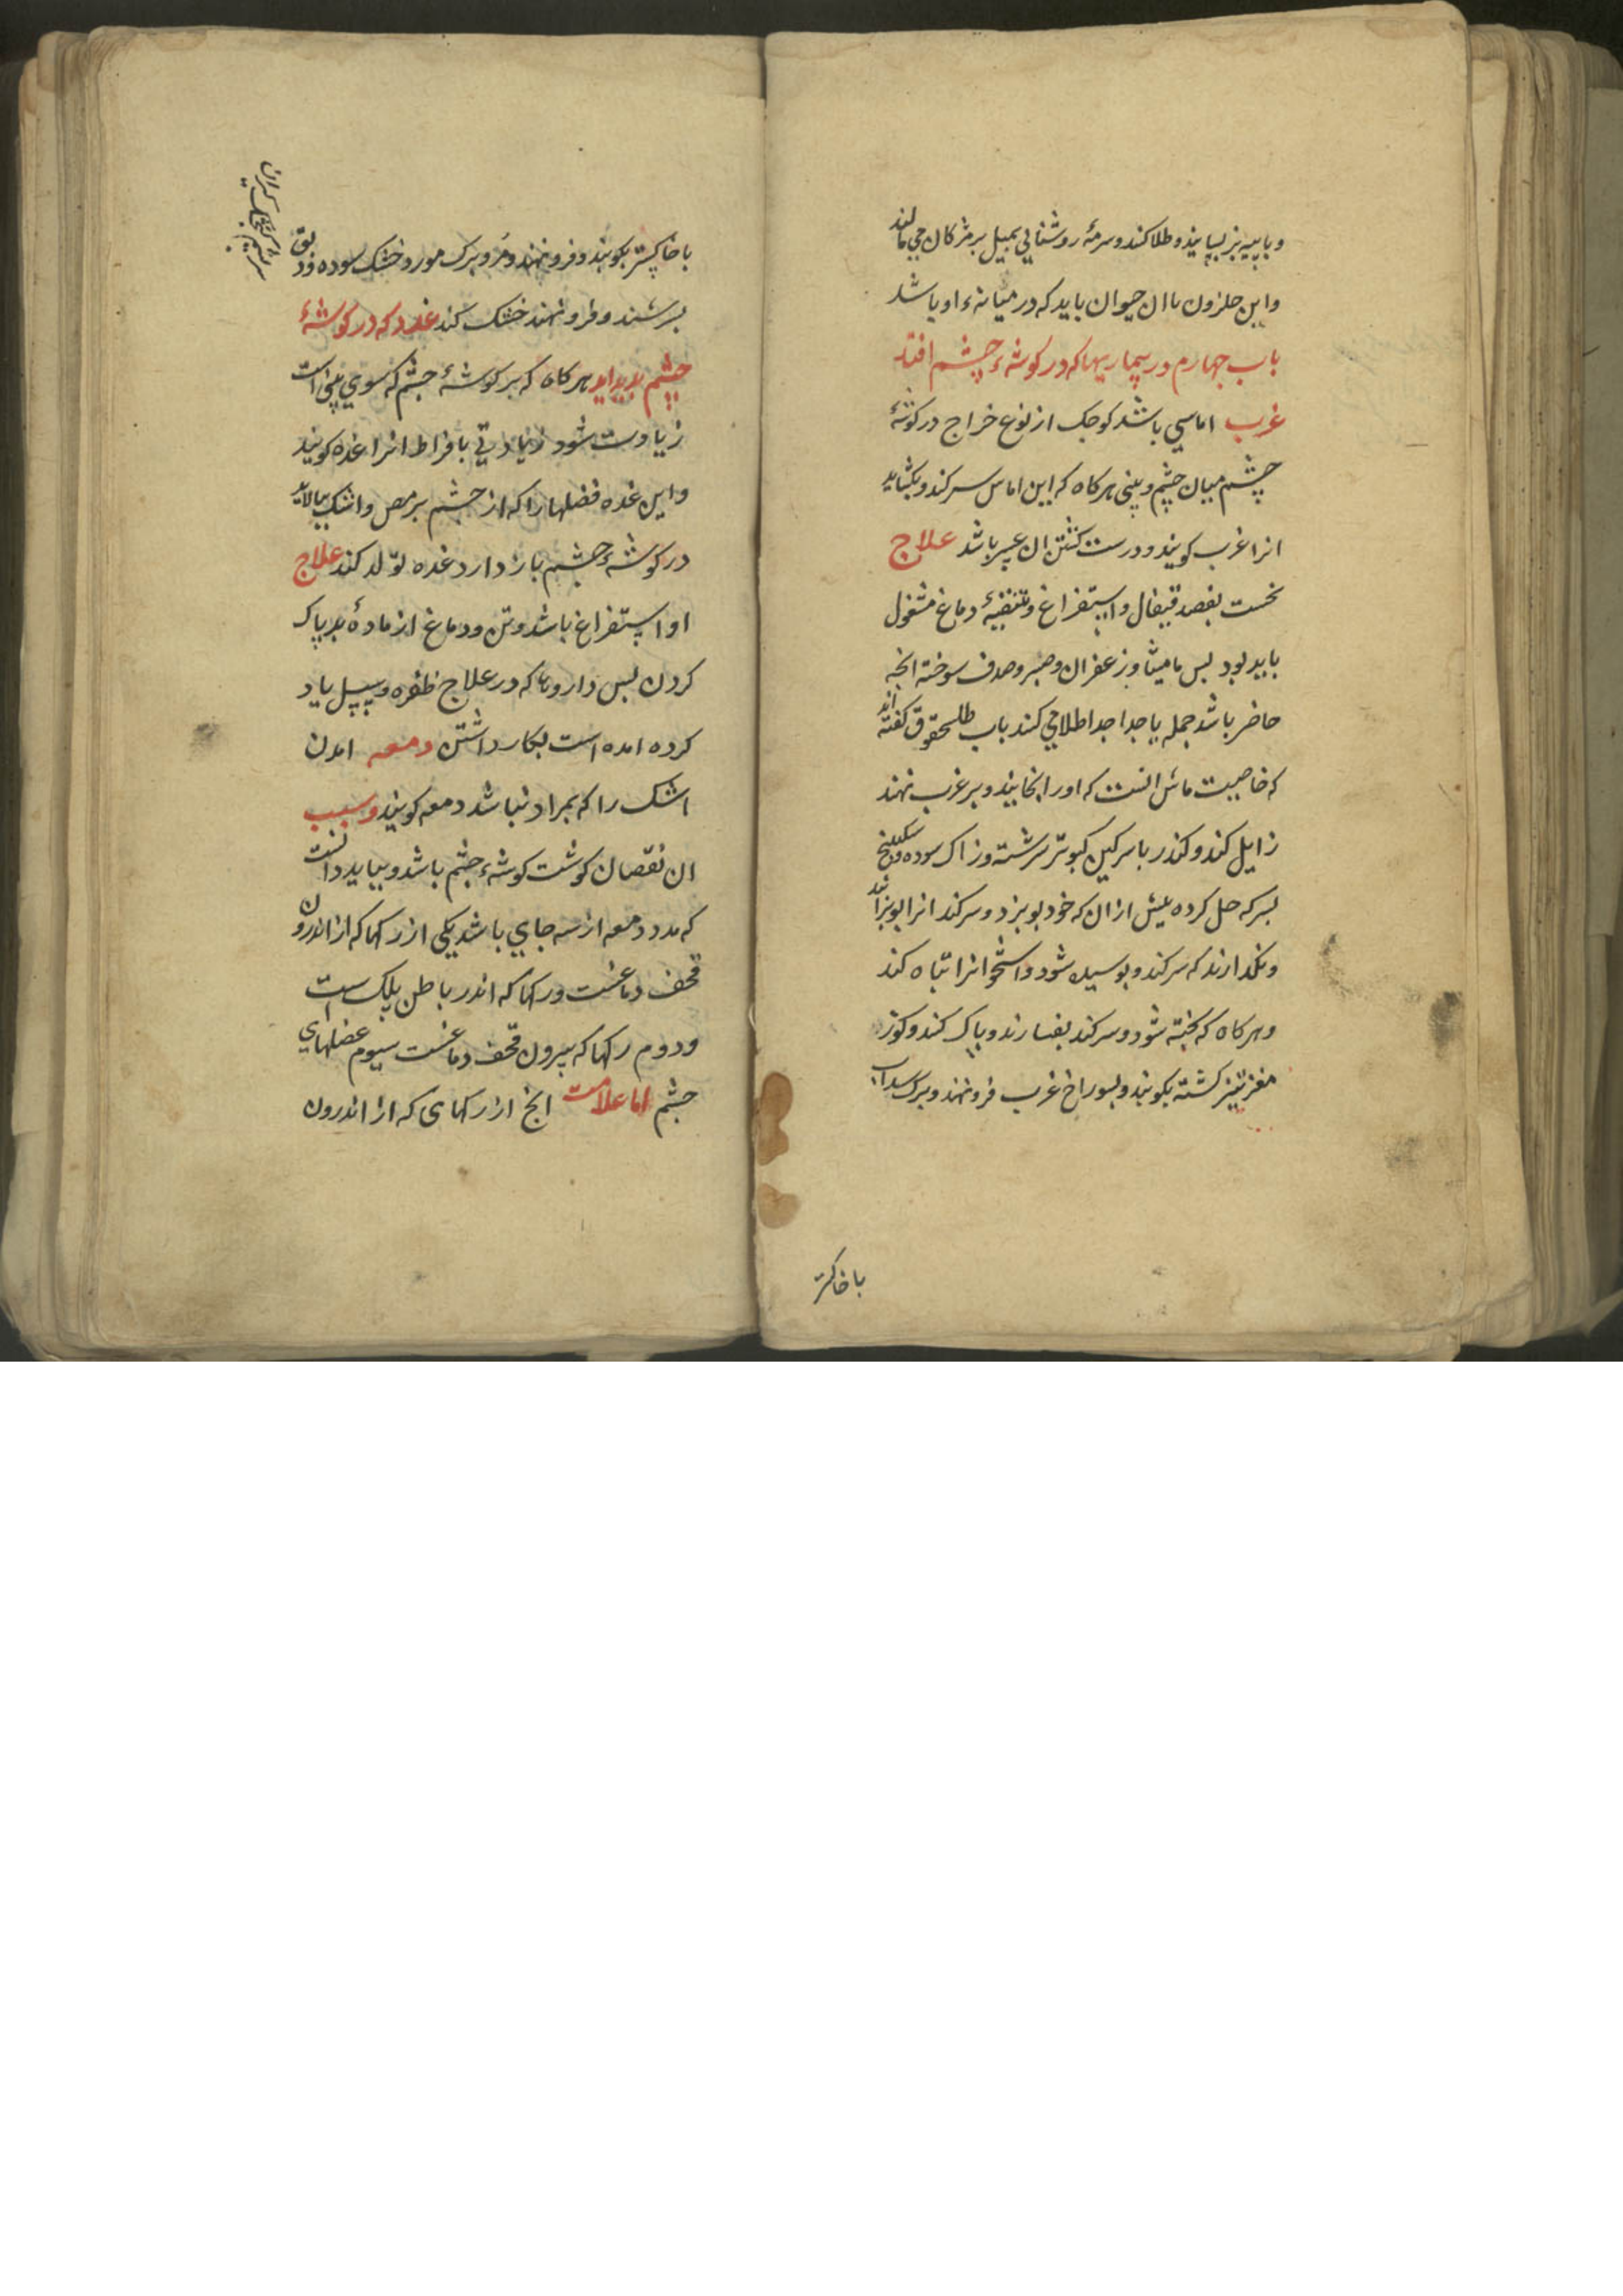 و با پیه بز بسایند و طلا کند و سرمهٔ روشنایی بمیل بر مژکان می مالند
و این حلزون با ان حیوان باید که در میانهٔ او باشد
باب چهارم در بیماریها که در کوشهٔ چشم افتد
غرب اماسی باشد کوچک از نوع خراج در کوشهٔ
چشم میان چشم و بینی هرکاه که این اماس سر کند و بکشاید
انرا غرب کویند و درست کشتن ان عسر باشد علاج
نخست بفصد قیفال و استفراغ و تنقیهٔ دماغ مشغول
باید بود بس مامیثا و زعفران و صبر و صدف سوخته انجه
حاضر باشد جمله یا جدا جدا طلا می کند باب طلحقوق کفته اند
که خاصیت ماش انست که اورا بخایند و بر غرب نهند
زایل کند و کندر با سرکین کبوتر سرشته و زاک سوده و سکبینج
بسرکه حل کرده بیش از ان که خود بوبزد و سر کند انرا بوبزاند
و نکذارند که سر کند و بوسیده شود و استخوانرا تباه کند
و هرکاه که بخته شود و سر کند بفسارند و باک کند و کوز
مغز تیز کشته بکوبند و بسوراخ غرب فرو نهند و برک سداب
با خاکستر
با خاکستر بکوبند و فرو نهند و مر و برک مورد خشک سوده و دبق
بسرشند و فرو نهند خشک کند غدد که در کوشهٔ
چشم بدید اید هرکاه که بر کوشهٔ چشم که سوی بینی است
زیادت شود زیادتی بافراط انرا غده کویند
و این غده فضلها را که از چشم برمص و اشک بیالاید
در کوشهٔ چشم باز دارد غده تولد کند علاج
او استفراغ باشد و تن و دماغ از مادهٔ بد پاک
کردن بس داروها که در علاج ظفره و سبل یاد
کرده امده است بکار داشتن دمعه امدن
اشک را که بمراد نباشد دمعه کویند و سبب
ان نقصان کوشت کوشهٔ چشم باشد و بباید دانست
که مدد دمعه از سه جای باشد یکی از رکها که از اندرون
قحف دماغست و رکها که اندر باطن پلک است
و دوم رکها که بیرون قحف دماغست سیوم عضلهای
چشم اما علامت انج از رکهای که از اندرون